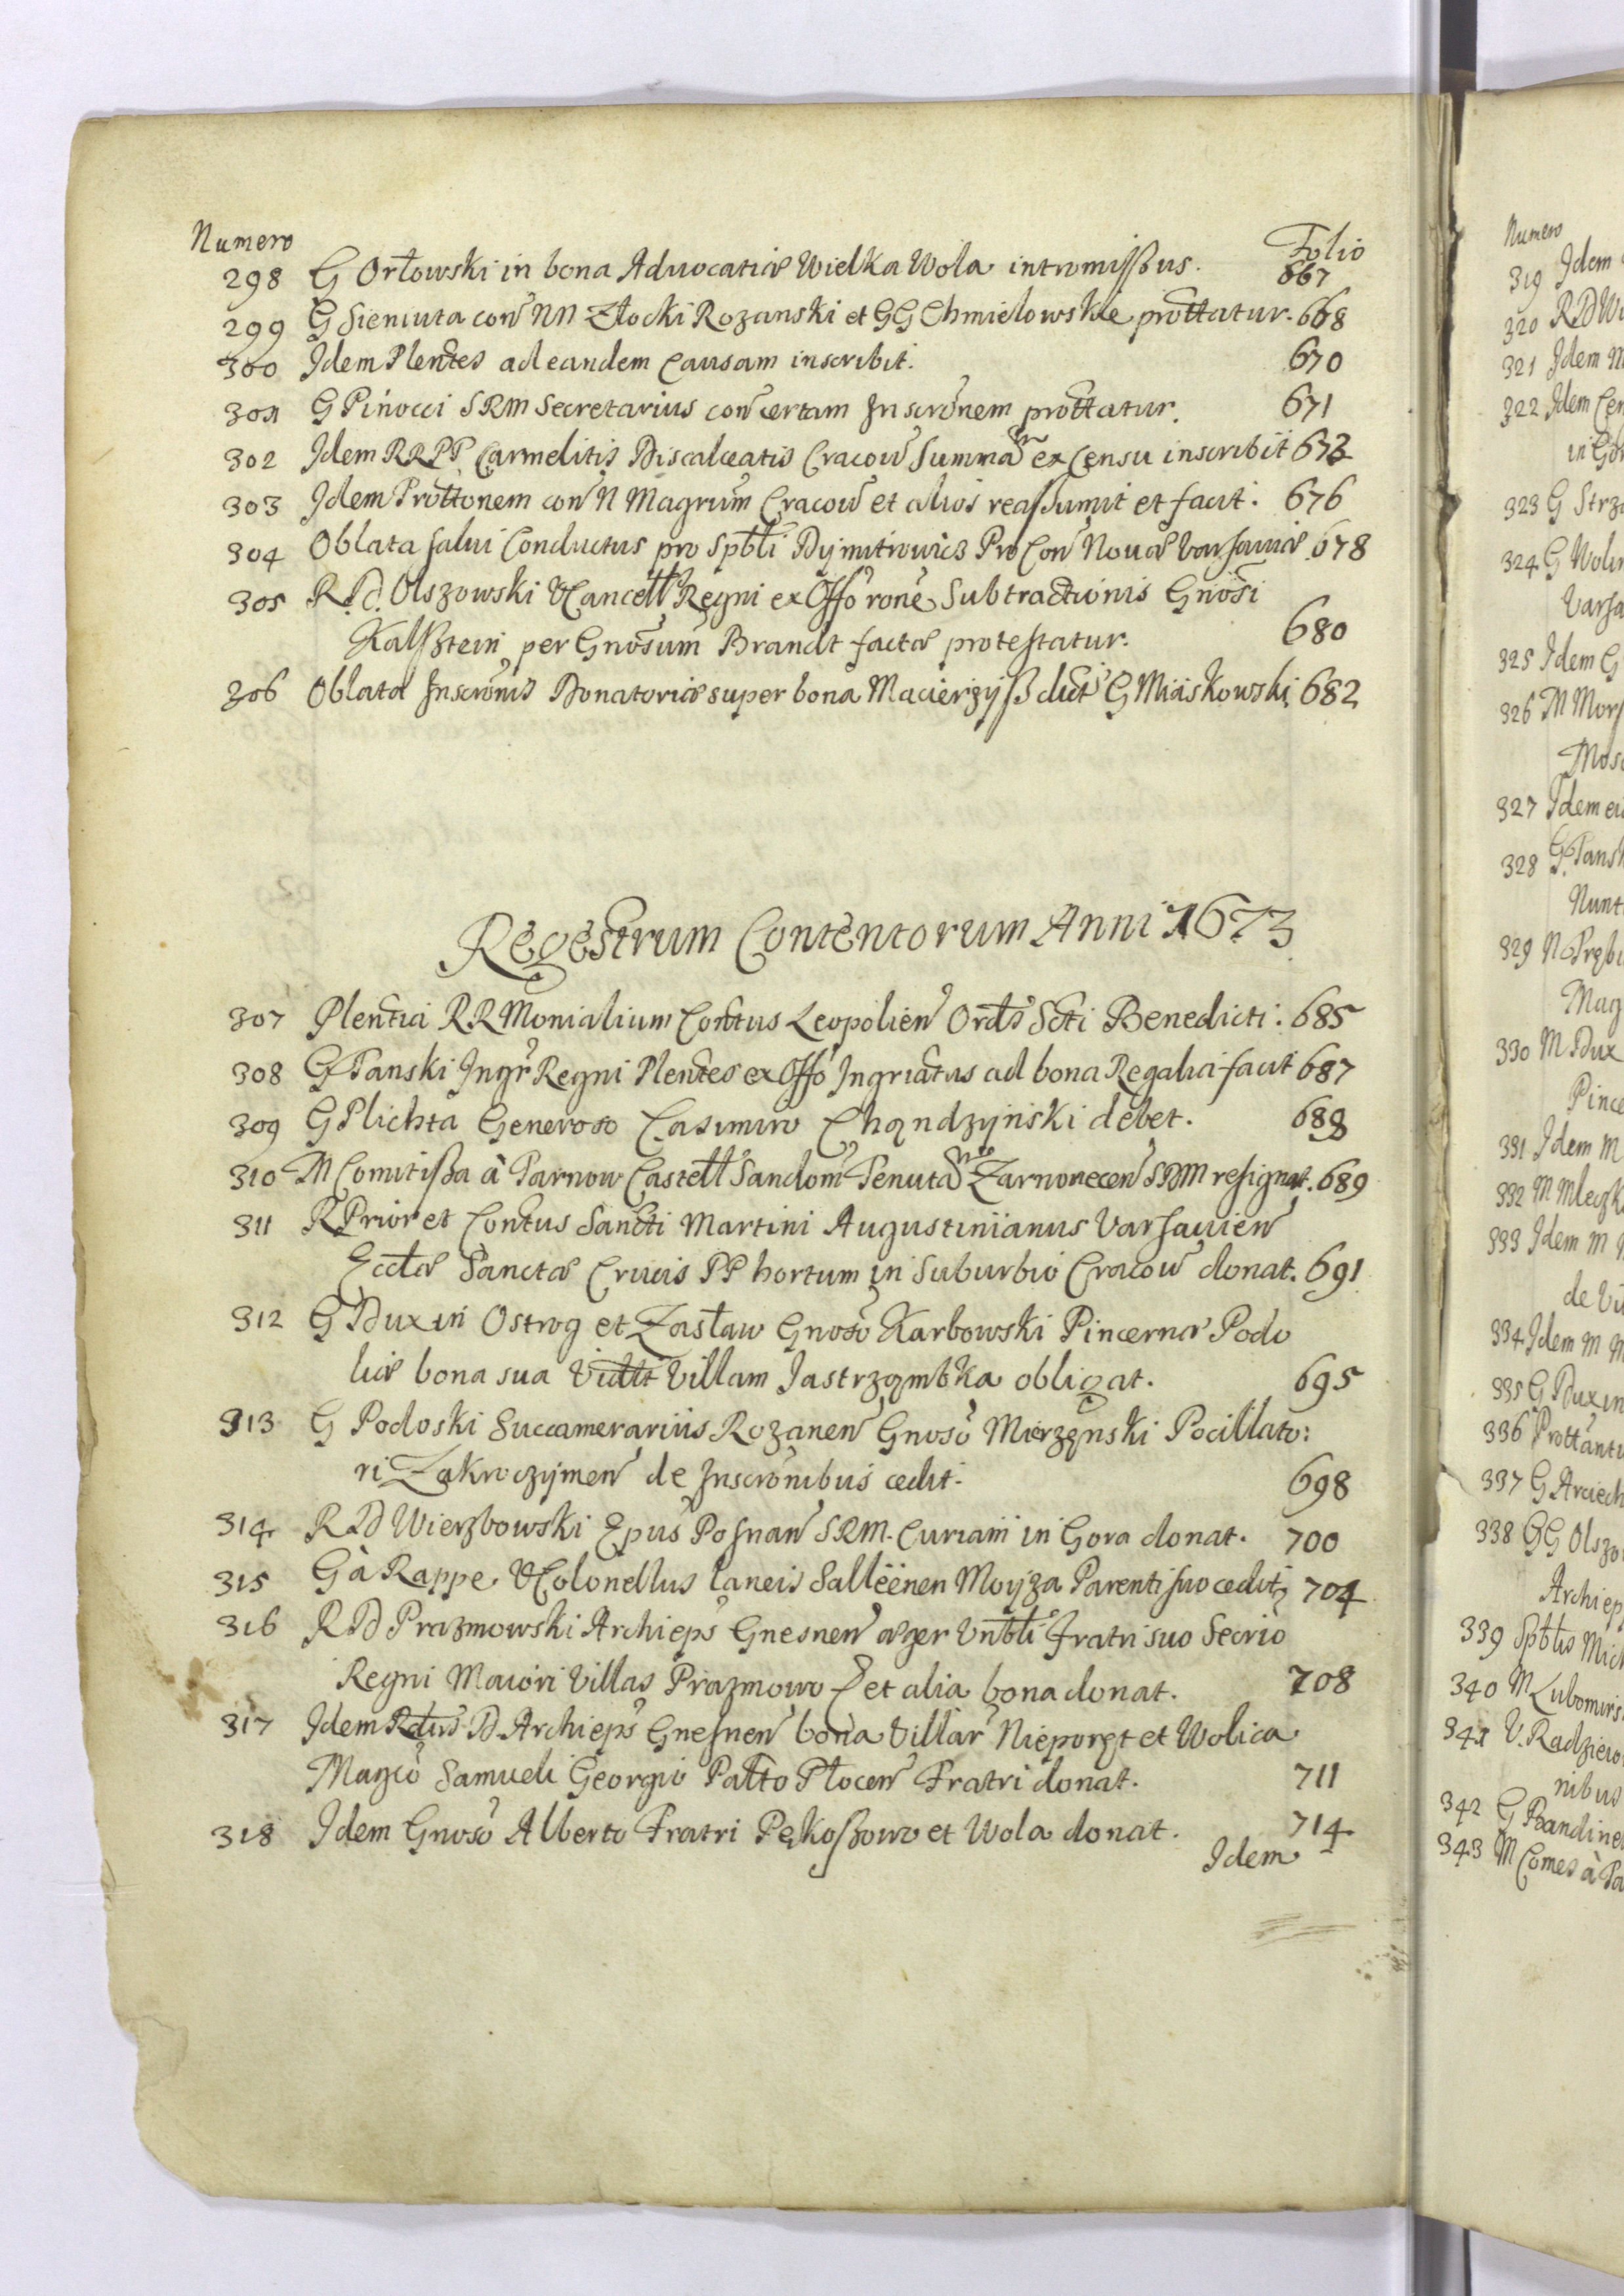 Numero
Folio
298 G Orłowski in bona Aduocatiæ Wielka Wola intromißus. 667
299 G Sieniuta con NN Złocki Rozanski et GG Chmielowskie prottatur. 668
300 Idem Plentes ad eandem Causam inscribit. 670
301 G Pinocci SRM Secretarius con certam Inscronem prottatur. 671
302 Idem RRPP Carmelitis Discalceatis Cracow Summam ex Censu inscribit 673
303 Idem Prottonem con N Magrum Cracow et alios reaßumit et facit. 676
304 Oblata salui Conductus pro Spbli Dymitrowicz ProCon Nouæ Varsauiæ 678
305 R.d. Olszowski VCancell Regni ex Offo rone Subtractionis Gnosi
Kalßtein per Gnosum Brandt factæ protestatur. 680
206 Oblata Inscronis Donatoriæ super bona Macierzyß dict G Miaskowski 682
Regestrum Contentorum Anni 1673
307 Plentia RR Monialium Contus Leopolien Ordis Scti Benedicti. 685
308 G Tanski Ingr Regni Plentes ex Offo Ingriatus ad bona Regalia facit 687
309 G Plichta Generoso Casimiro Chądzyński debet. 688
310 M Comitißa à Tarnow Castell Sandom Tenuta Zarnonecen SRM resignat. 689
311 R Prior et Contus Sancti Martini Augustinianus Varsauien
Ecclæ Sanctæ Crucis PP hortum in Suburbio Cracow donat. 691
312 G Dux in Ostrog et Zasław Gnoso Karbowski Pincernæ Podo
liæ bona sua Vidlt Villam Jastrzqmbka obligat. 695
313 G Podoski Succamerarius Rozanen Gnoso Mierzęnski Pocillato:
ri Zakroczymen de Inscronibus cedit. 698
314 RD Wierzbowski Epus Posnan SRM. Curiam in Gora donat. 700
315 G à Rappe VColonellus laneis Salleenen Moyza Parenti suo cedit 704
316 RD Prazmowski Archieps Gnesnen æger Vnbli fratri suo Secrio
Regni Maiori Villas Prazmowo et alia bona donat. 708
317 Idem Rdus D. Archieps Gnesnen bona Villar Nieporęt et Wolica
Magco Samueli Georgio Palto Płocen Fratri donat. 711
318 Idem Gnoso Alberto Fratri Pękoßowo et Wola donat. 714
Idem
Numero
319 Idem
320 RD Wi
321 Idem
322 Idem Cen
323 G Strz
324 G Wolin
Varsa
325 Idem G
326 M Mors
Mosc
327 Idem
328 G. Tansk
Nunt
329
Mag
330 M Dux
Pince
331 Idem M
332 M Mleczk
333 Idem M
de
334 Idem M
335 G Dux in
336 Prottantu
337 G Arciech
338 GG Olszo
Archiep
339 Spblis Mich
340 M Lubomirs
341 V. Radzieio
nibus
342 G Bandine
343 M Comes à Ta